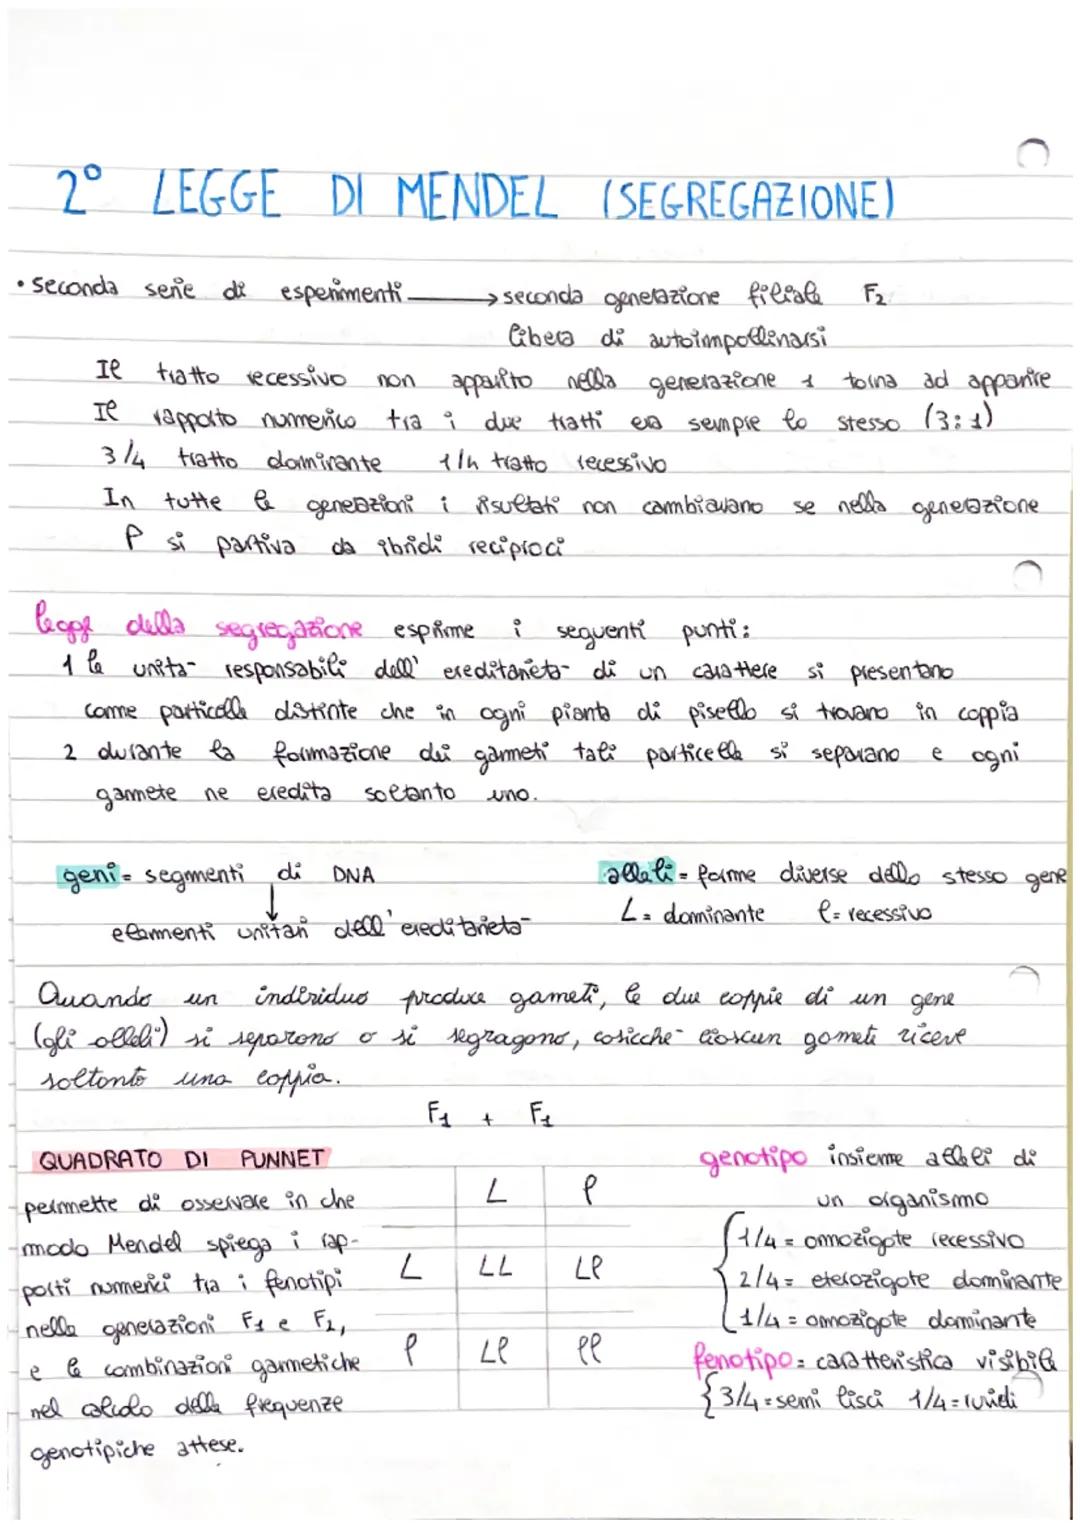 2° LEGGE DI MENDEL (SEGREGAZIONE)
• seconda serie di esperimenti → seconda generazione filiale F2
libera di autoimpollinarsi
Il tratto recessivo non apparito nella generazione 1 torna ad apparire
Il rapporto numerico tra i due tratti era sempre lo stesso (3:1)
3/4 tratto dominante 1/4 tratto recessivo
In tutte le generazioni i risultati non cambiavano se nella generazione
P si partiva da ibridi reciproci
legge della segregazione esprime i seguenti punti:
1 le unita- responsabili dell' ereditarieta- di un carattere si presentano
come particelle distinte che in ogni pianta di pisello si trovano in coppia
2 durante la formazione dei gameti tali particelle si separano e ogni
gamete ne eredita soltanto uno.
geni = segmenti di DNA
↓
elementi unitari dell' ereditarieta-
alleli = forme diverse dello stesso gene
L = dominante l = recessivo
Quando un individuo produce gameti, le due coppie di un gene
(gli alleli) si separano o si segragono, cosicche- ciascun gamete riceve
soltanto una coppia.
F1 + F1
QUADRATO DI PUNNET
permette di osservare in che
modo Mendel spiega i rap-
porti numerici tra i fenotipi
nelle generazioni F1 e F2,
e le combinazioni gametiche
nel calcolo delle frequenze
genotipiche attese.
L l
L LL Ll
l Ll ll
genotipo insieme alleli di
un organismo
1/4 = omozigote recessivo
2/4 = eterozigote dominante
1/4 = omozigote dominante
fenotipo = caratteristica visibile
3/4 = semi lisci 1/4 = ruvidi